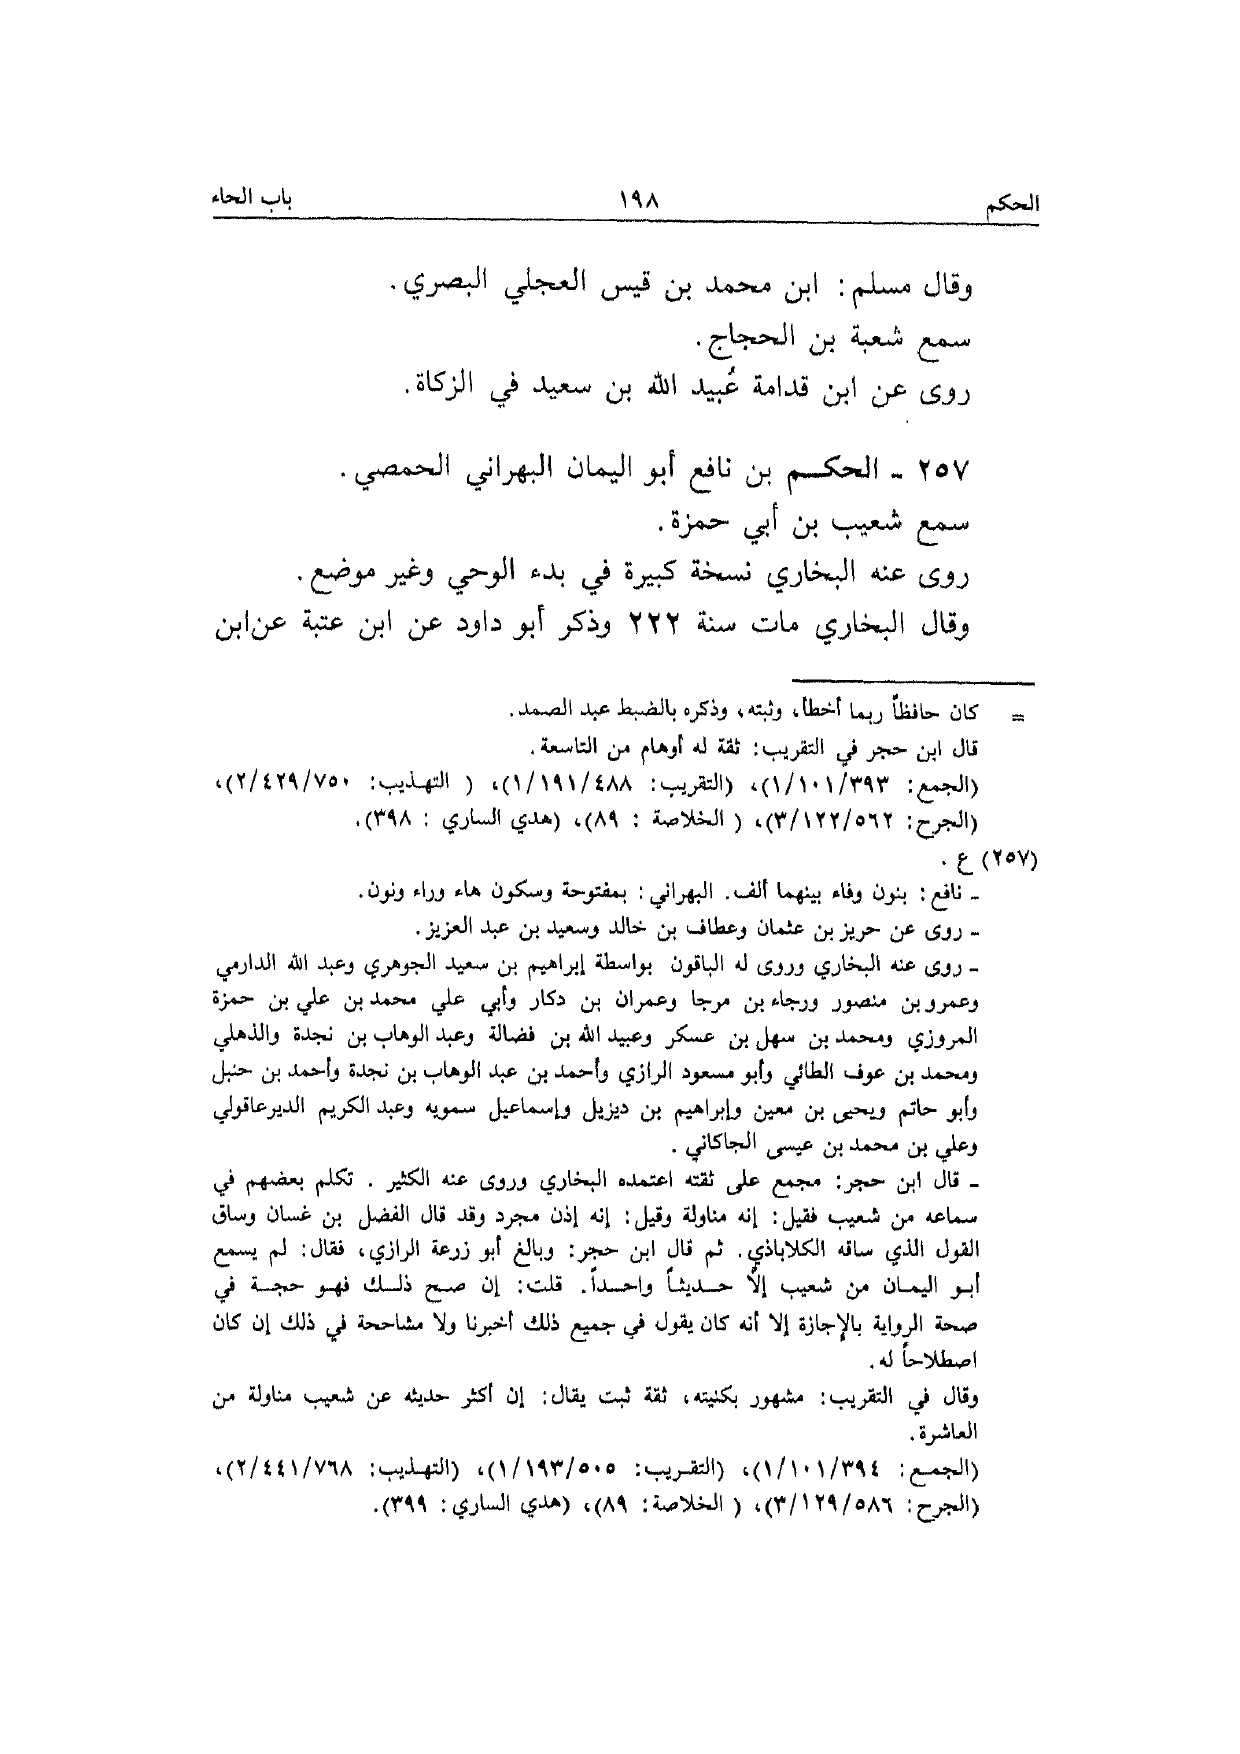 الحكم ١٩٨ باب الحاء
وقال مسلم: ابن محمد بن قيس العجلي البصري.
سمع شعبة بن الحجاج.
روى عن ابن قدامة عُبيد الله بن سعيد في الزكاة.
٢٥٧ - الحكم بن نافع أبو اليمان البهراني الحمصي.
سمع شعيب بن أبي حمزة.
روى عنه البخاري نسخة كبيرة في بدء الوحي وغير موضع.
وقال البخاري مات سنة ٢٢٢ وذكر أبو داود عن ابن عتبة عن ابن
= كان حافظاً ربما أخطأ، وثبته، وذكره بالضبط عبد الصمد.
قال ابن حجر في التقريب: ثقة له أوهام من التاسعة.
(الجمع: ١/١٠١/٣٩٣)، (التقريب: ١/١٩١/٤٨٨)، (التهذيب: ٢/٤٢٩/٧٥٠)،
(الجرح: ٣/١٢٢/٥٦٢)، (الخلاصة: ٨٩)، (هدي الساري: ٣٩٨).
(٢٥٧) ع.
- نافع: بنون وفاء بينهما ألف. البهراني: بمفتوحة وسكون هاء وراء ونون.
- روى عن حريز بن عثمان وعطاف بن خالد وسعيد بن عبد العزيز.
- روى عنه البخاري وروى له الباقون بواسطة إبراهيم بن سعيد الجوهري وعبد الله الدارمي
وعمرو بن منصور ورجاء بن مرجا وعمران بن دكار وأبي علي محمد بن علي بن حمزة
المروزي ومحمد بن سهل بن عسكر وعبيد الله بن فضالة وعبد الوهاب بن نجدة والذهلي
ومحمد بن عوف الطائي وأبو مسعود الرازي وأحمد بن عبد الوهاب بن نجدة وأحمد بن حنبل
وأبو حاتم ويحيى بن معين وإبراهيم بن ديزيل وإسماعيل سمويه وعبد الكريم الديرعاقولي
وعلي بن محمد بن عيسى الجاكاني.
- قال ابن حجر: مجمع على ثقته اعتمده البخاري وروى عنه الكثير. تكلم بعضهم في
سماعه من شعيب فقيل: إنه مناولة وقيل: إنه إذن مجرد وقد قال الفضل بن غسان وساق
القول الذي ساقه الكلاباذي. ثم قال ابن حجر: وبالغ أبو زرعة الرازي، فقال: لم يسمع
أبو اليمان من شعيب إلّا حديثاً واحداً. قلت: إن صح ذلك فهو حجة في
صحة الرواية بالإجازة إلا أنه كان يقول في جميع ذلك أخبرنا ولا مشاححة في ذلك إن كان
اصطلاحاً له.
وقال في التقريب: مشهور بكنيته، ثقة ثبت يقال: إن أكثر حديثه عن شعيب مناولة من
العاشرة.
(الجمع: ١/١٠١/٣٩٤)، (التقريب: ١/١٩٣/٥٠٥)، (التهذيب: ٢/٤٤١/٧٦٨)،
(الجرح: ٣/١٢٩/٥٨٦)، (الخلاصة: ٨٩)، (هدي الساري: ٣٩٩).